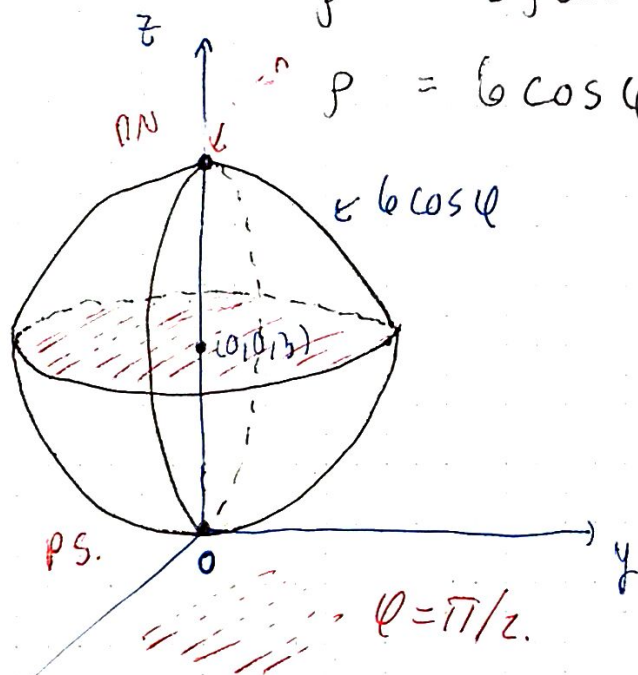 z
ρ = 6 cos φ
PN
6 cos φ
(0,0,3)
PS.
0
y
φ = π/2.